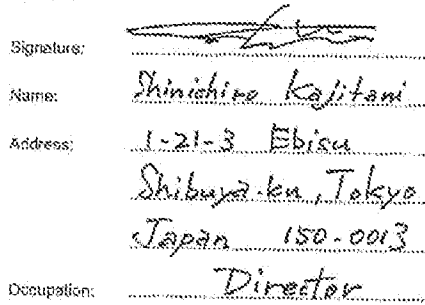 Signature:
Name: Shinichiro Kajitani
Address: 1-21-3 Ebisu
Shibuya-ku, Tokyo
Japan 150-0013
Occupation: Director